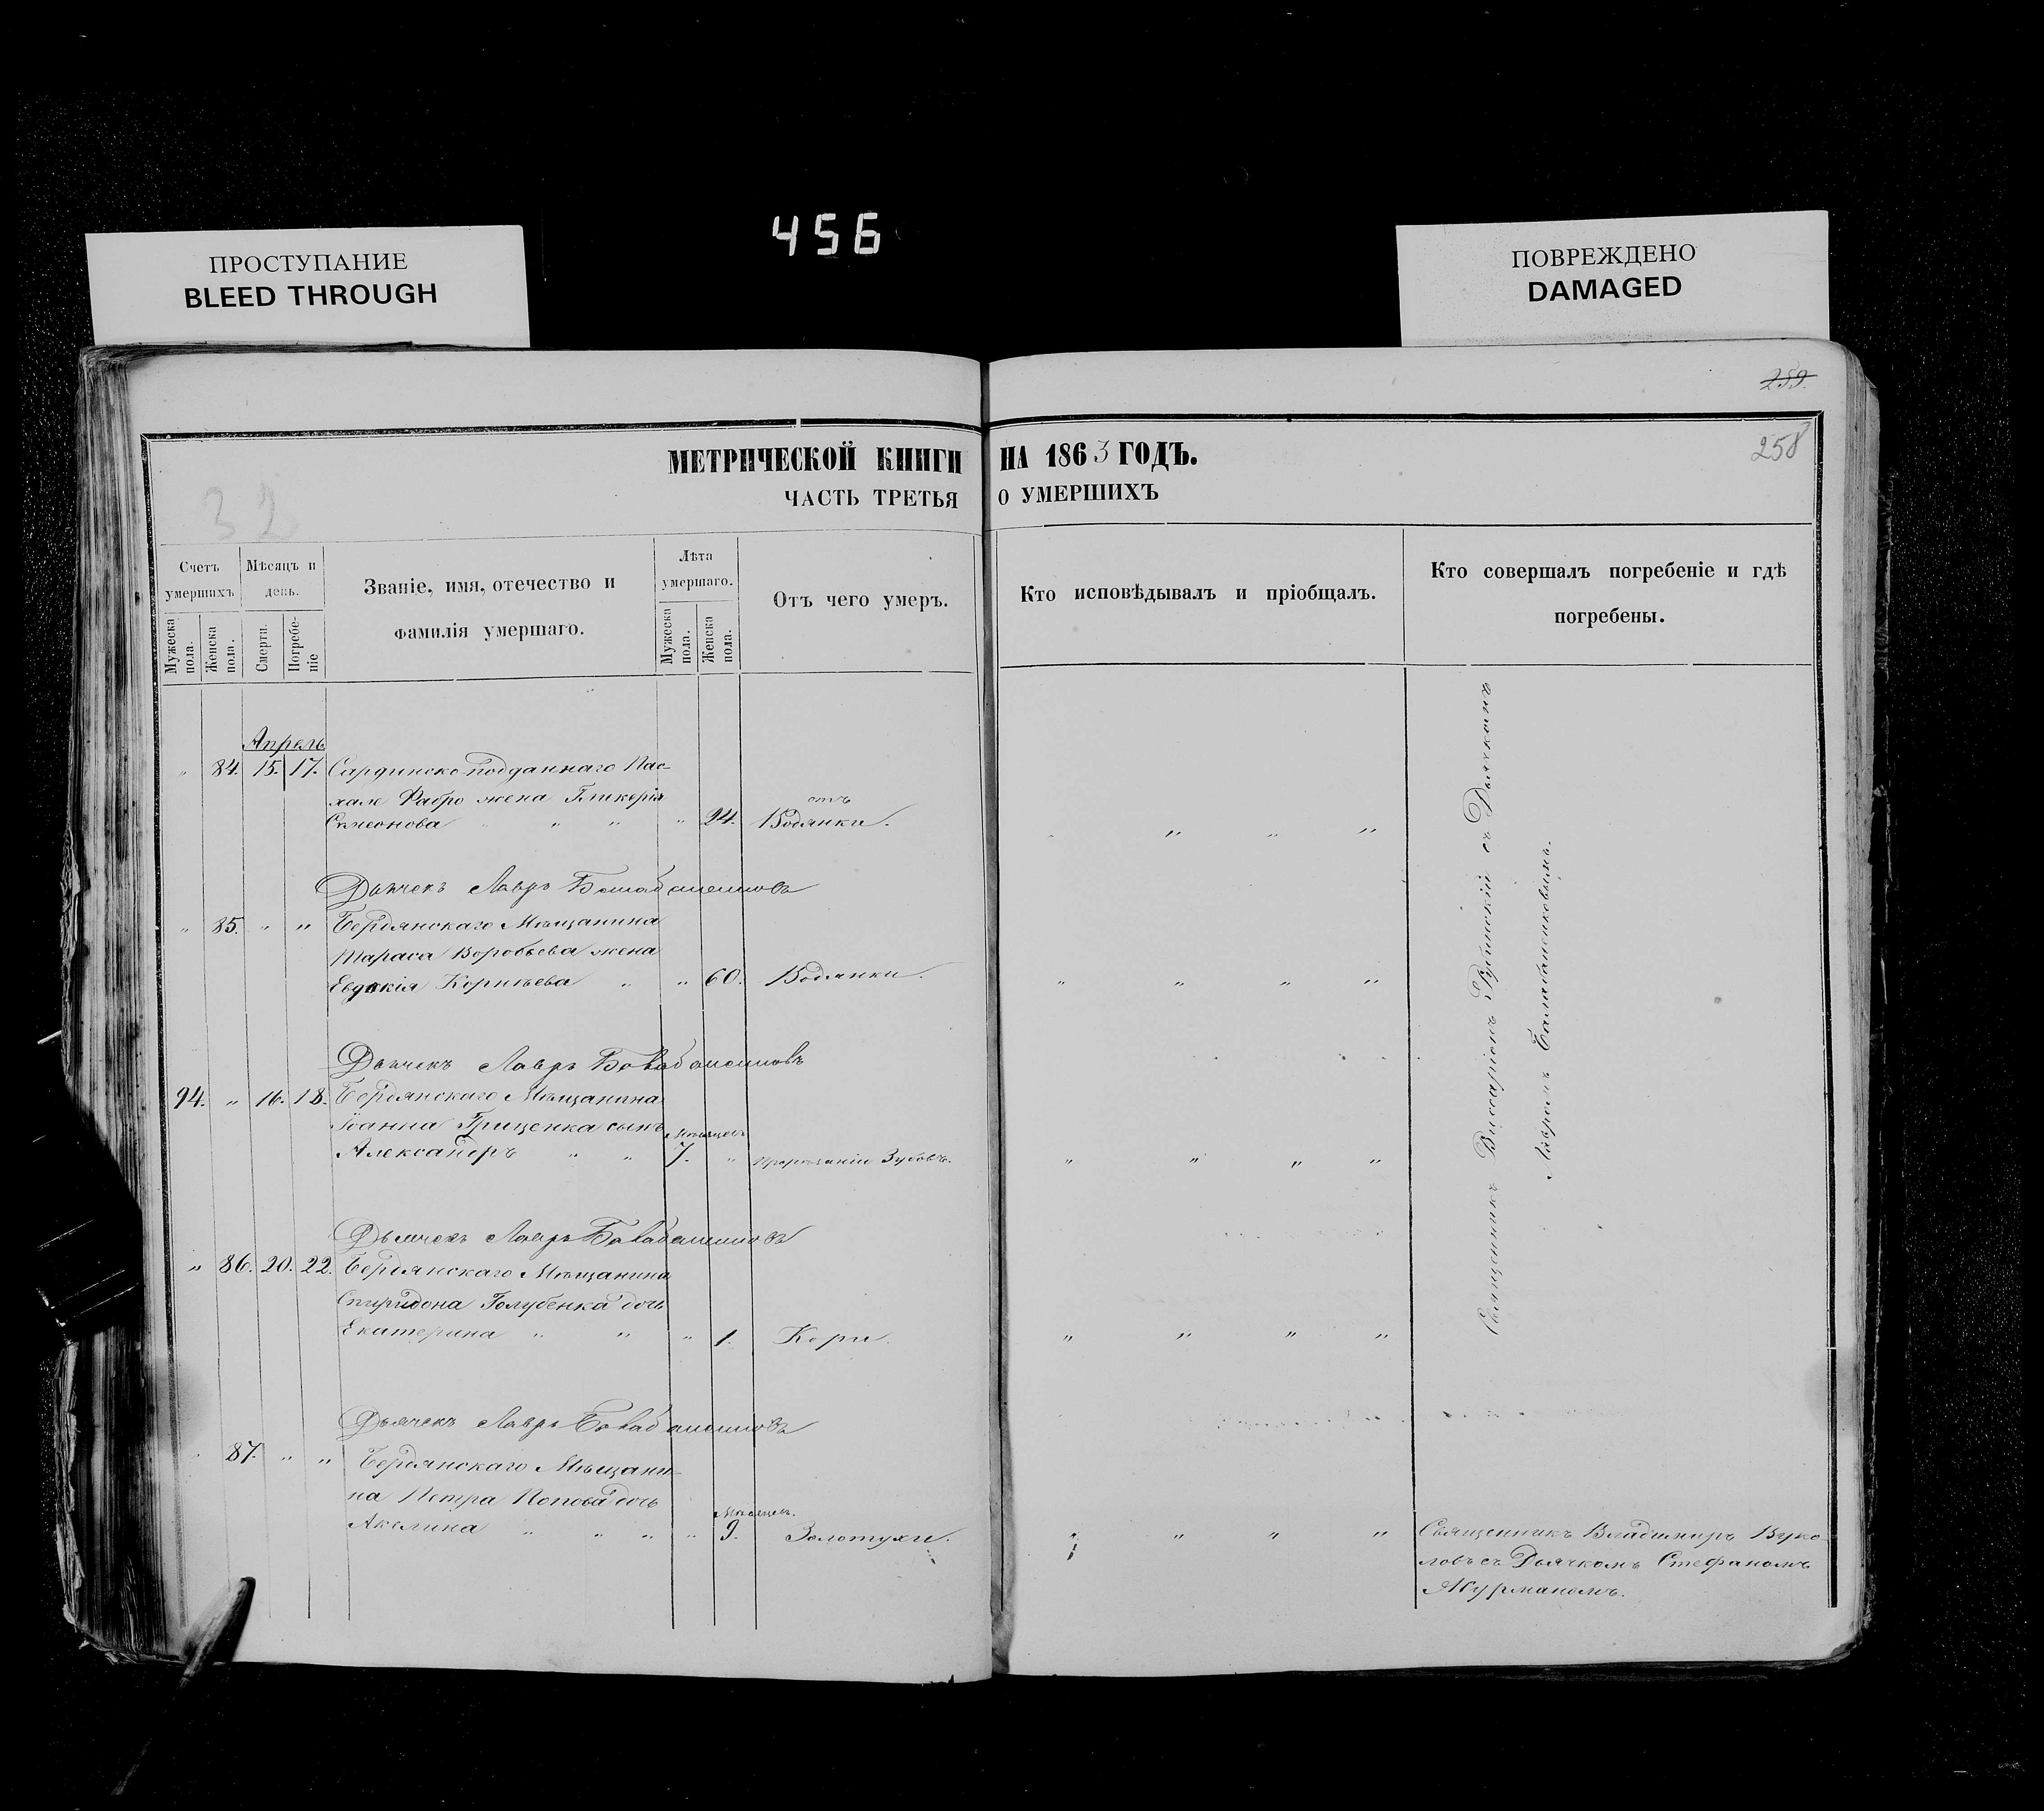 456
ПРОСТУПАНИЕ
BLEED THROUGH
ПОВРЕЖДЕНО
DAMAGED
259.
258
32
МЕТРИЧЕСКОЙ КНИГИ НА 1863 ГОДЪ.
ЧАСТЬ ТРЕТЬЯ О УМЕРШИХЪ
Счетъ умершихъ
Мужеска пола.
Женска пола.
Мѣсяцъ и день.
Смерти.
Погребеніе
Званіе, имя, отечество и
фамилія умершаго.
Лѣта умершаго.
Мужеска пола.
Женска пола.
Отъ чего умеръ.
Кто исповѣдывалъ и пріобщалъ.
Кто совершалъ погребеніе и гдѣ
погребены.
Апрель
" 84. 15. 17. Сардинско-подданнаго Пас-
хале Фабро жена Гликерія
Симеонова " " " " 24. отъ Водянки. " " "
Дьячекъ Лавръ
" 85. " " Бердянскаго Мѣщанина
Тараса Воробьева жена
Евдокія Корнѣева " " 60. Водянки. " " " "
Дьячекъ Лавръ
94. " 16. 18. Бердянскаго Мѣщанина
Іоанна Гриценка сынъ
Александръ " " Мѣсяцев 7. " Прорѣзанія Зубовъ. " " " "
Дьячекъ Лавръ
" 86. 20. 22. Бердянскаго Мѣщанина
Спиридона Голубенка дочь
Екатерина " " " 1. Кори. " " " "
Дьячекъ Лавръ
" 87. " " Бердянскаго Мѣщани-
на Петра Попова дочь
Акилина " " " " Мѣсяцев. 9. Золотухи. " " " "
Священникъ Виссаріонъ с Дьячкомъ
Лавромъ
Священникъ Владимиръ Вуко-
ловъ съ Дьячкомъ Стефаномъ
Журманомъ.